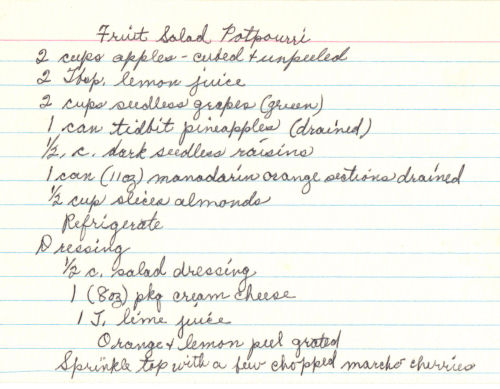 Fruit Salad Potpourri
2 cups apples - cubed & unpeeled
2 Tbsp. lemon juice
2 cups seedless grapes (green)
1 can tidbit pineapples (drained)
1/2 c. dark seedless raisins
1 can (11oz) manadarin orange sections drained
1/2 cup slices almonds
Refrigerate
Dressing
1/2 c. salad dressing
1 (8oz) pkg cream cheese
1 T. lime juice
Orange & lemon peel grated
Sprinkle top with a few chopped marcho cherries